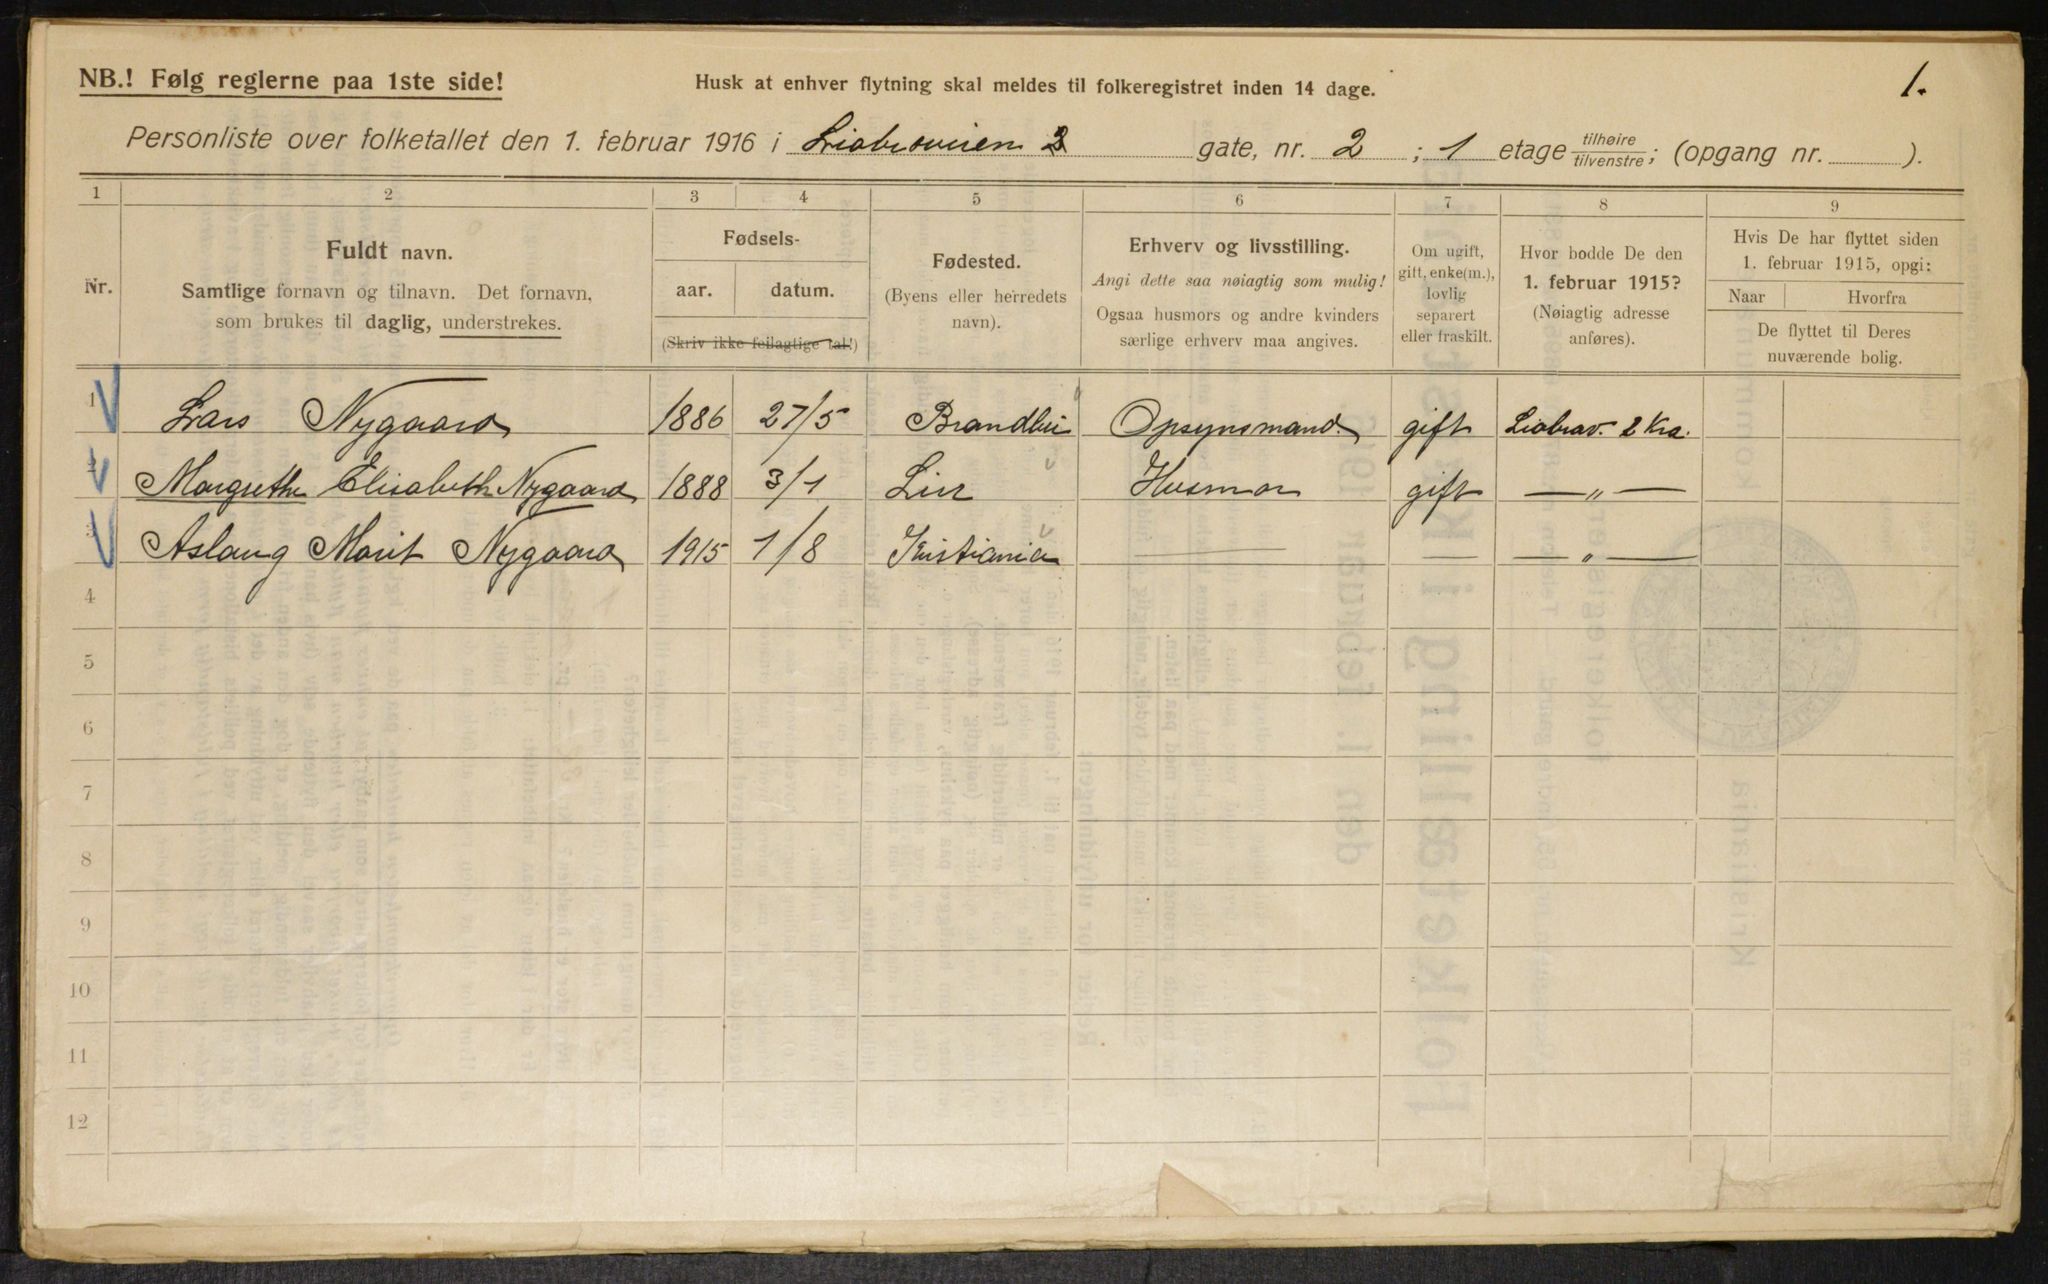 NB.! Følg reglerne paa 1ste side!
Husk at enhver flytning skal meldes til folkeregistret inden 14 dage.
1.
Personliste over folketallet den 1. februar 1916 i Liabroveien gate, nr. 2 ; 1 etage tilhøire tilvenstre; (opgang nr. ).
1 2 3 4 5 6 7 8 9
Nr.
Fuldt navn.
Samtlige fornavn og tilnavn. Det fornavn,
som brukes til daglig, understrekes.
Fødsels-
aar. datum.
(Skriv ikke feilagtige tal!)
Fødested.
(Byens eller herredets
navn).
Erhverv og livsstilling.
Angi dette saa nøiagtig som mulig!
Ogsaa husmors og andre kvinders
særlige erhverv maa angives.
Om ugift,
gift, enke(m.),
lovlig
separert
eller fraskilt.
Hvor bodde De den
1. februar 1915?
(Nøiagtig adresse
anføres).
Hvis De har flyttet siden
1. februar 1915, opgi:
Naar Hvorfra
De flyttet til Deres
nuværende bolig.
1 Lars Nygaard 1886 27/5 Brandbu Opsynsmand. gift Liabrov. 2 Kra.
2 Margrethe Elisabeth Nygaard 1888 3/1 Lier Husmor gift — „ —
3 Aslaug Marit Nygaard 1915 1/8 Kristiania — — — „ —
4
5
6
7
8
9
10
11
12